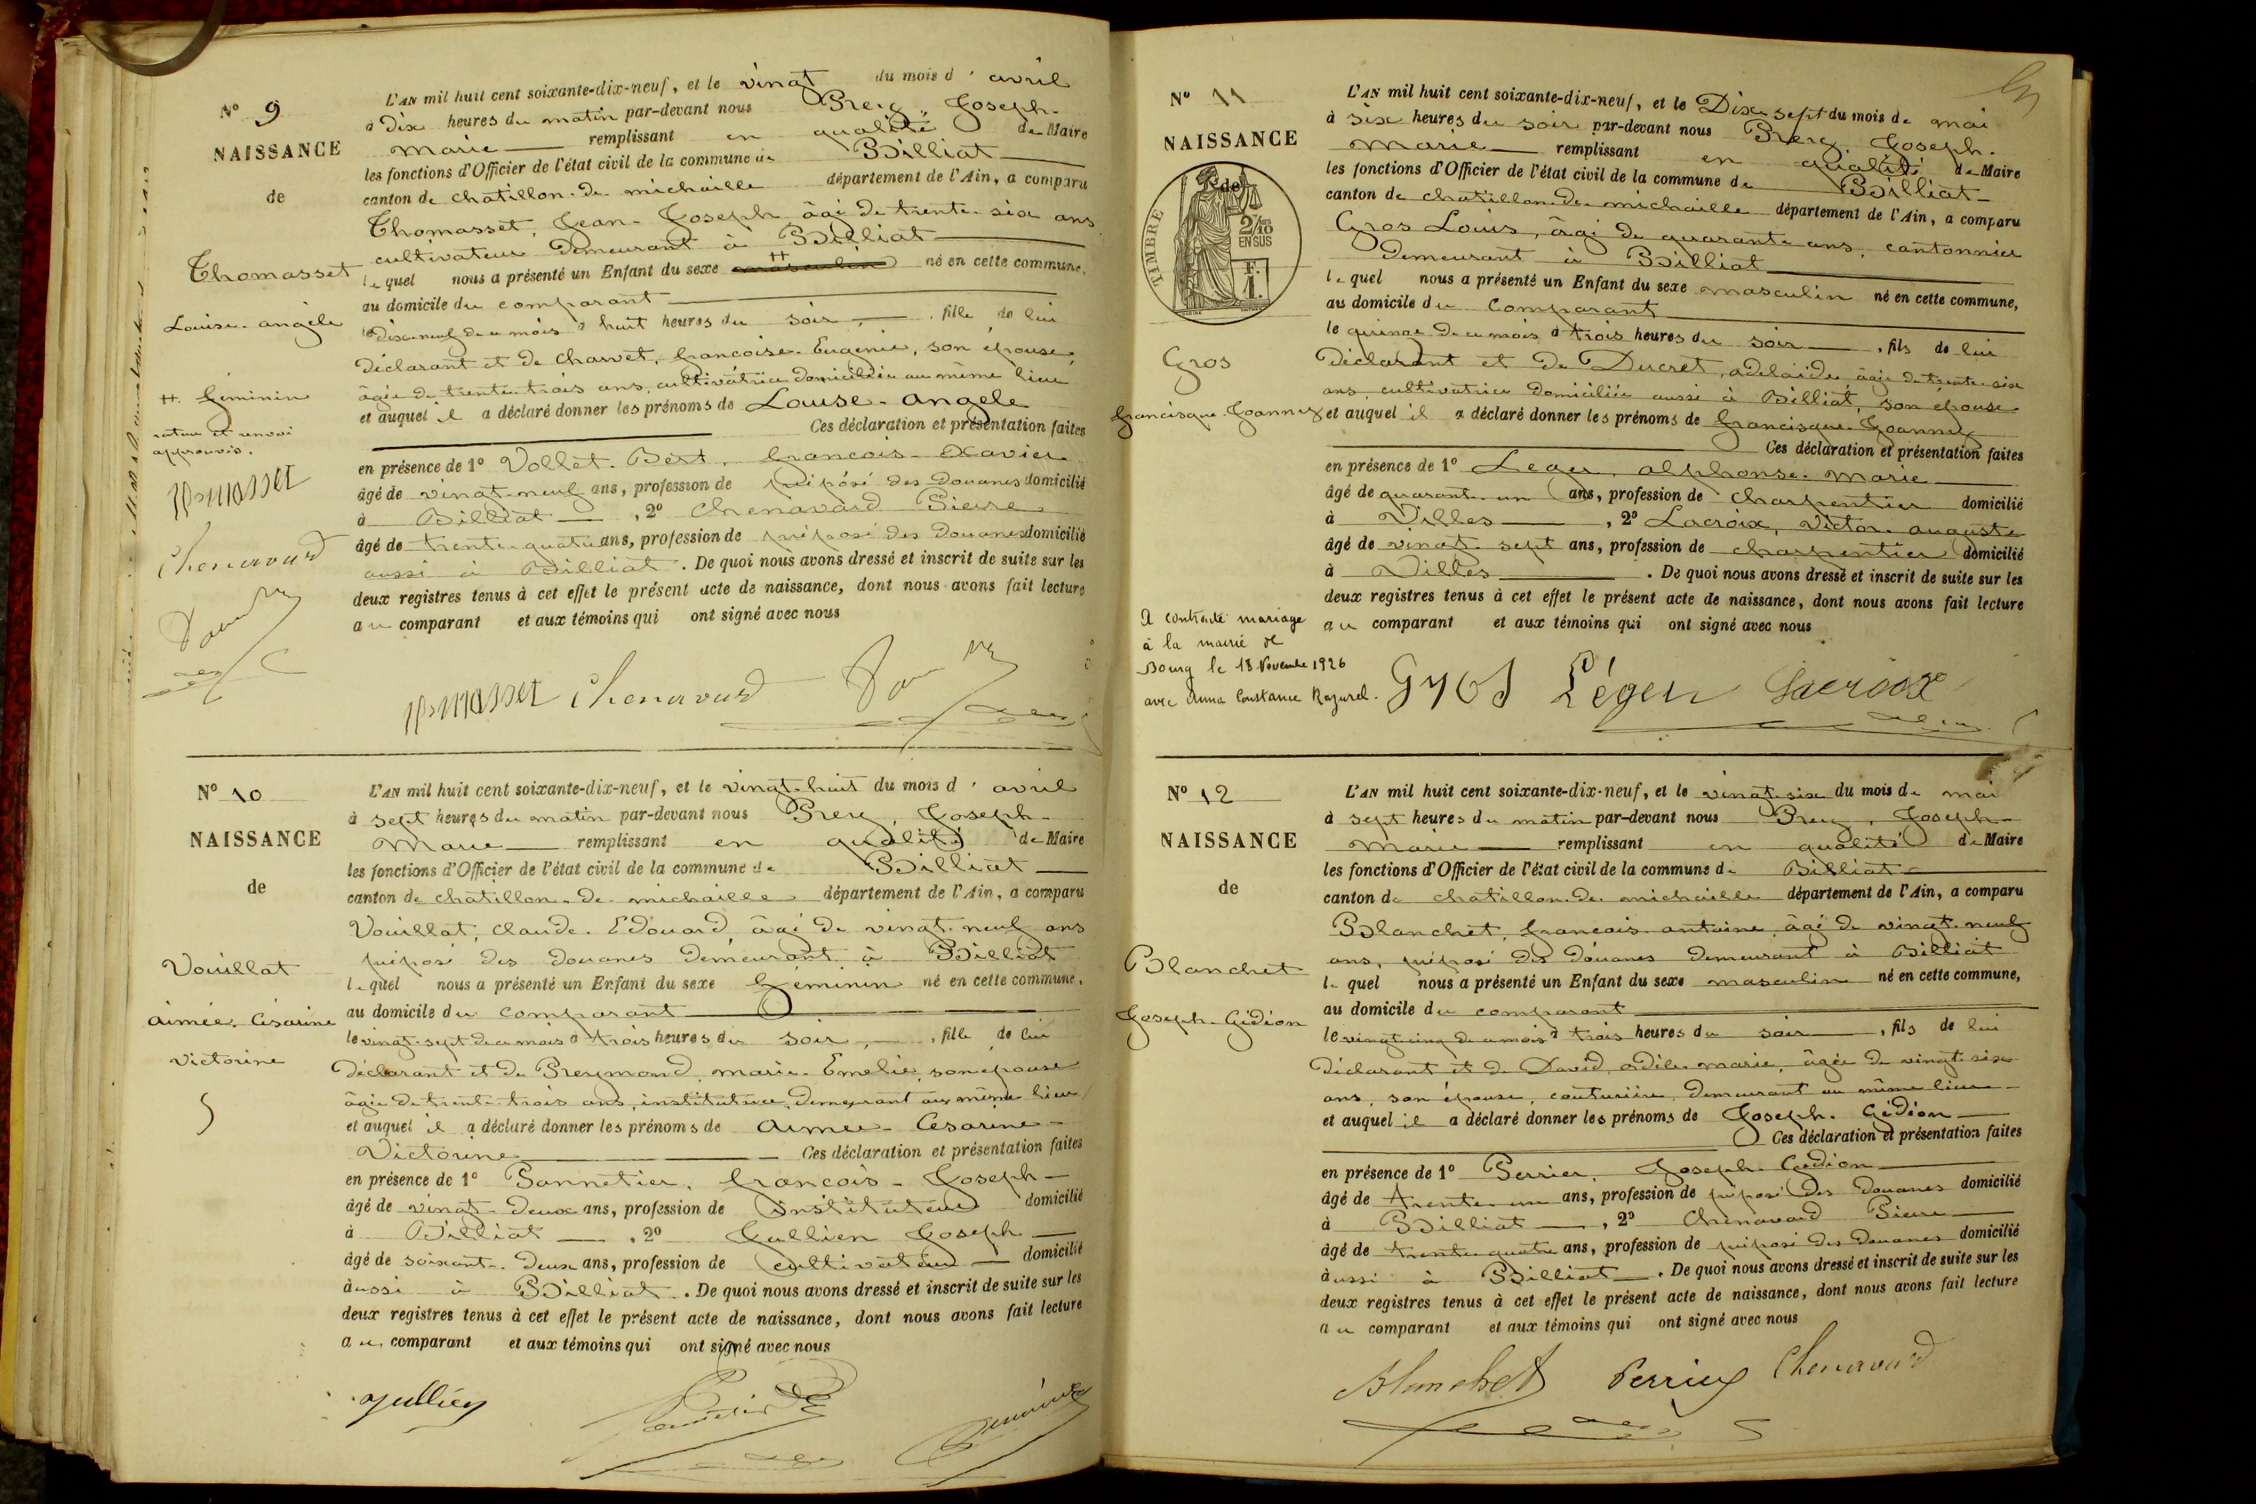 N° 9
NAISSANCE
de
Thomasset
Louise-angèle
++ féminin
rature et renvoi
approuvés.
Thomasset
Chenavard
L'AN mil huit cent soixante-dix-neuf, et le vingt du mois d'avril
à Dix heures du matin par-devant nous Prery, Joseph-
Marie remplissant en qualité de Maire
les fonctions d'Officier de l'état civil de la commune de Billiat
canton de chatillon-de-michaille département de l'Ain, a comparu
Thomasset, Jean-Joseph âgé de trente-six ans
cultivateur demeurant à Billiat
lequel nous a présenté un Enfant du sexe ++ masculin né en cette commune,
au domicile du comparant
le dix-neuf de ce mois à huit heures du soir, fille de lui
déclarant et de Charvet, françoise-Eugénie, son épouse,
âgée de trente-trois ans, cultivatrice domiciliée au même lieu
et auquel il a déclaré donner les prénoms de Louise-angele
Ces déclaration et présentation faites
en présence de 1° Vollet-Bert, françois-Xavier
âgé de vingt-neuf ans, profession de préposé des Douanes domicilié
à Billiat, 2° Chenavard Pierre
âgé de trente-quatre ans, profession de préposé des Douanes domicilié
aussi à Billiat. De quoi nous avons dressé et inscrit de suite sur les
deux registres tenus à cet effet le présent acte de naissance, dont nous avons fait lecture
au comparant et aux témoins qui ont signé avec nous
Thomasset Chenavard
N° 10
NAISSANCE
de
Vouillat
aimée-Césarine
victorine
L'AN mil huit cent soixante-dix-neuf, et le vingt-huit du mois d'avril
à sept heures du matin par-devant nous Prery, Joseph-
Marie remplissant en qualité de Maire
les fonctions d'Officier de l'état civil de la commune de Billiat
canton de chatillon-de-michaille département de l'Ain, a comparu
Vouillat, claude-Edouard âgé de vingt-neuf ans
préposé des douanes demeurant à Billiat
lequel nous a présenté un Enfant du sexe féminin né en cette commune,
au domicile du comparant
le vingt-sept de ce mois à trois heures du soir, fille de lui
déclarant et de Preymond, marie-Emelie, son épouse
âgée de trente-trois ans, institutrice, demeurant au même lieu
et auquel il a déclaré donner les prénoms de aimée-Césarine-
Victorine Ces déclaration et présentation faites
en présence de 1° Pannetier, françois-Joseph
âgé de vingt-deux ans, profession de instituteur domicilié
à Billiat, 2° Jullien Joseph
âgé de soixante-deux ans, profession de cultivateur domicilié
aussi à Billiat. De quoi nous avons dressé et inscrit de suite sur les
deux registres tenus à cet effet le présent acte de naissance, dont nous avons fait lecture
au comparant et aux témoins qui ont signé avec nous
Jullien
N° 11
NAISSANCE
de
TIMBRE
2/10
EN SUS
F.
1.
Gros
francisque-Joanny
A contracté mariage
à la mairie de
Bourg le 18 Novembre 1926
avec Anna Constance
L'AN mil huit cent soixante-dix-neuf, et le Dix-sept du mois de mai
à six heures du soir par-devant nous Prery, Joseph-
Marie remplissant en qualité de Maire
les fonctions d'Officier de l'état civil de la commune de Billiat
canton de chatillon-de-michaille département de l'Ain, a comparu
Gros Louis, âgé de quarante ans, cantonnier
demeurant à Billiat
lequel nous a présenté un Enfant du sexe masculin né en cette commune,
au domicile du comparant
le quinze de ce mois à trois heures du soir, fils de lui
déclarant et de Ducret, adelaide, âgée de trente-six
ans, cultivatrice domiciliée aussi à Billiat, son épouse
et auquel il a déclaré donner les prénoms de francisque-Joanny
Ces déclaration et présentation faites
en présence de 1° Leger, alphonse-marie
âgé de quarante-un ans, profession de charpentier domicilié
à Villes, 2° Lacroix, victor-auguste
âgé de vingt-sept ans, profession de charpentier domicilié
à Villes. De quoi nous avons dressé et inscrit de suite sur les
deux registres tenus à cet effet le présent acte de naissance, dont nous avons fait lecture
au comparant et aux témoins qui ont signé avec nous
Gros Léger Lacroix
N° 12
NAISSANCE
de
Blanchet
Joseph-Gédéon
L'AN mil huit cent soixante-dix-neuf, et le vingt-six du mois de mai
à sept heures du matin par-devant nous Prery, Joseph-
Marie remplissant en qualité de Maire
les fonctions d'Officier de l'état civil de la commune de Billiat
canton de chatillon-de-michaille département de l'Ain, a comparu
Blanchet, françois-antoine, âgé de vingt-neuf
ans, préposé des douanes demeurant à Billiat
lequel nous a présenté un Enfant du sexe masculin né en cette commune,
au domicile du comparant
le vingt-cinq de ce mois à trois heures du soir, fils de lui
déclarant et de David, odile-marie, âgée de vingt-six
ans, son épouse, couturière, demeurant au même lieu
et auquel il a déclaré donner les prénoms de Joseph-Gédéon
Ces déclaration et présentation faites
en présence de 1° Perrier, Joseph-Gédéon
âgé de trente-un ans, profession de préposé des Douanes domicilié
à Billiat, 2° Chenavard Pierre
âgé de trente-quatre ans, profession de préposé des Douanes domicilié
aussi à Billiat. De quoi nous avons dressé et inscrit de suite sur les
deux registres tenus à cet effet le présent acte de naissance, dont nous avons fait lecture
au comparant et aux témoins qui ont signé avec nous
Blanchet Perrier Chenavard